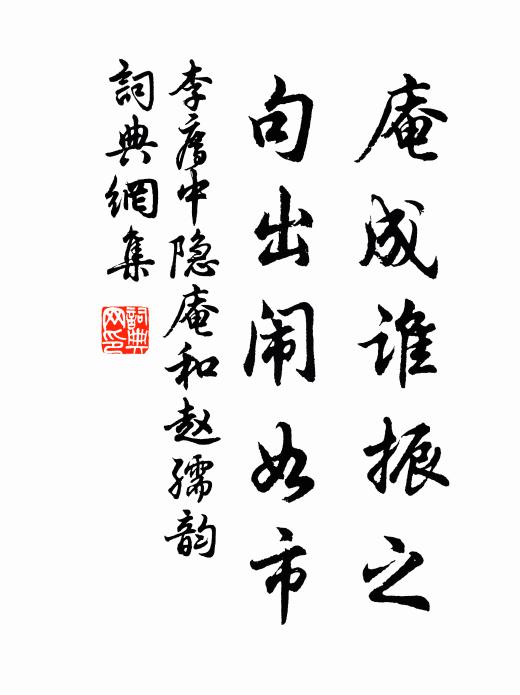 庵成谁振之
句出闹如市
李奮中隐庵和赵孺韵
詞典網集
詞典网印